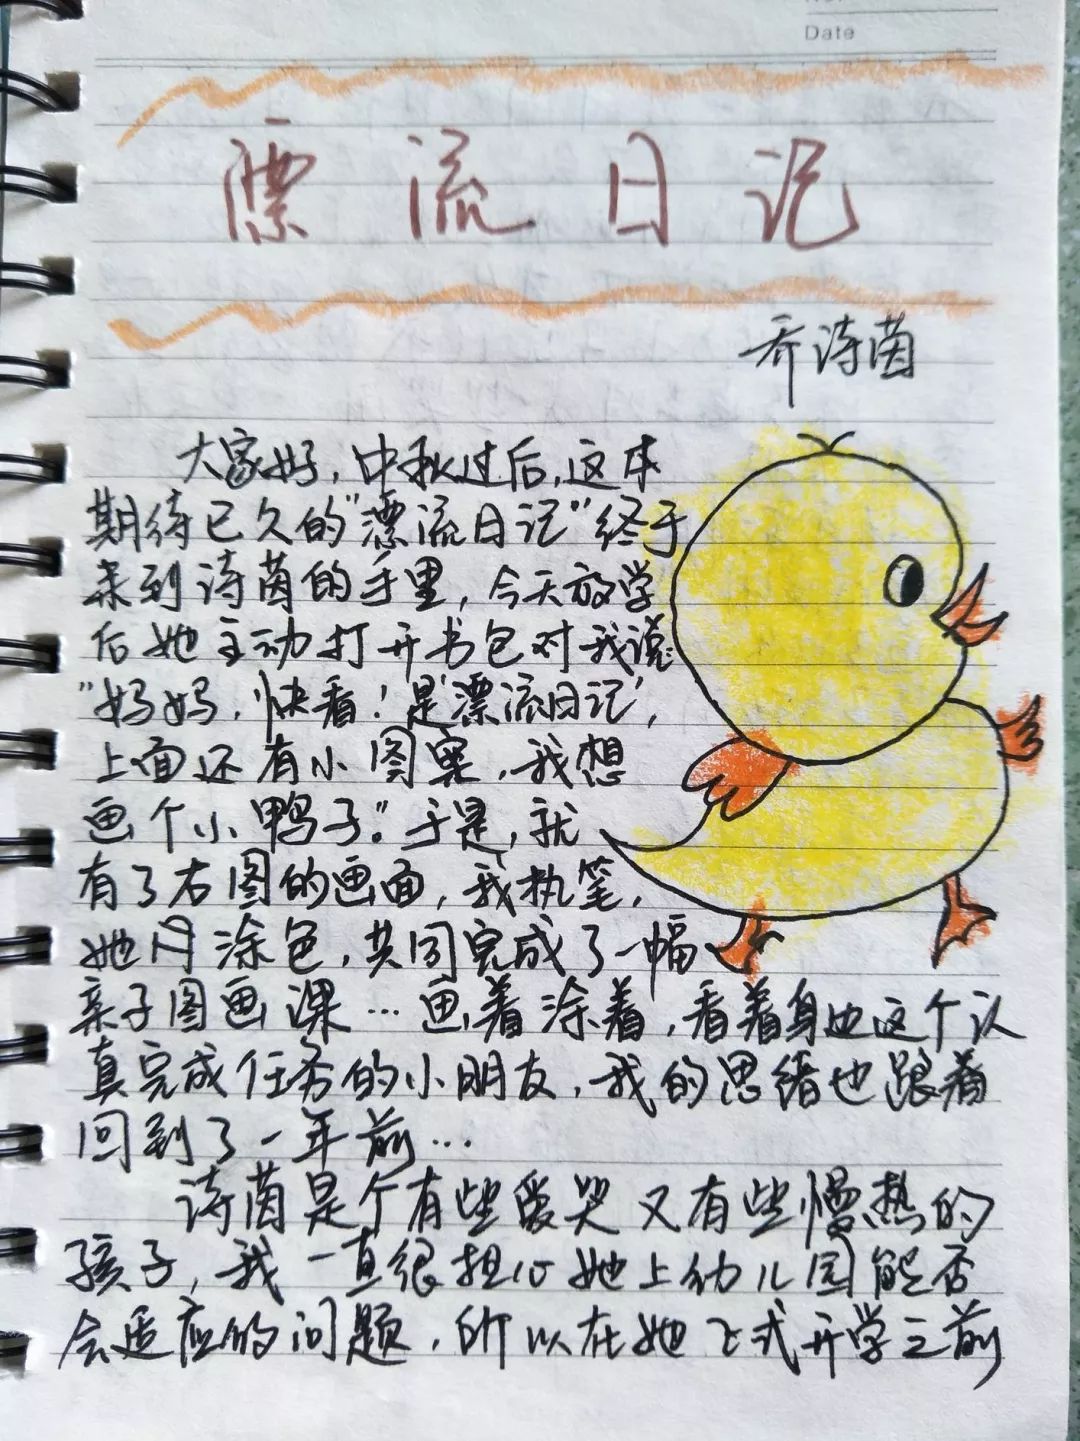 Date
漂流日记
乔诗茵
大家好，中秋过后，这本
期待已久的“漂流日记”终于
来到诗茵的手里，今天放学
后她主动打开书包对我说：
“妈妈，快看！是‘漂流日记’，
上面还有小图案，我想
画个小鸭子。”于是，就
有了右图的画面，我执笔，
她涂色，共同完成了一幅
亲子图画课…画着涂着，看着身边这个认
真完成任务的小朋友，我的思绪也跟着
回到了一年前…
诗茵是个有些爱哭又有些慢热的
孩子，我一直很担心她上幼儿园能否
会适应的问题，所以在她正式开学之前